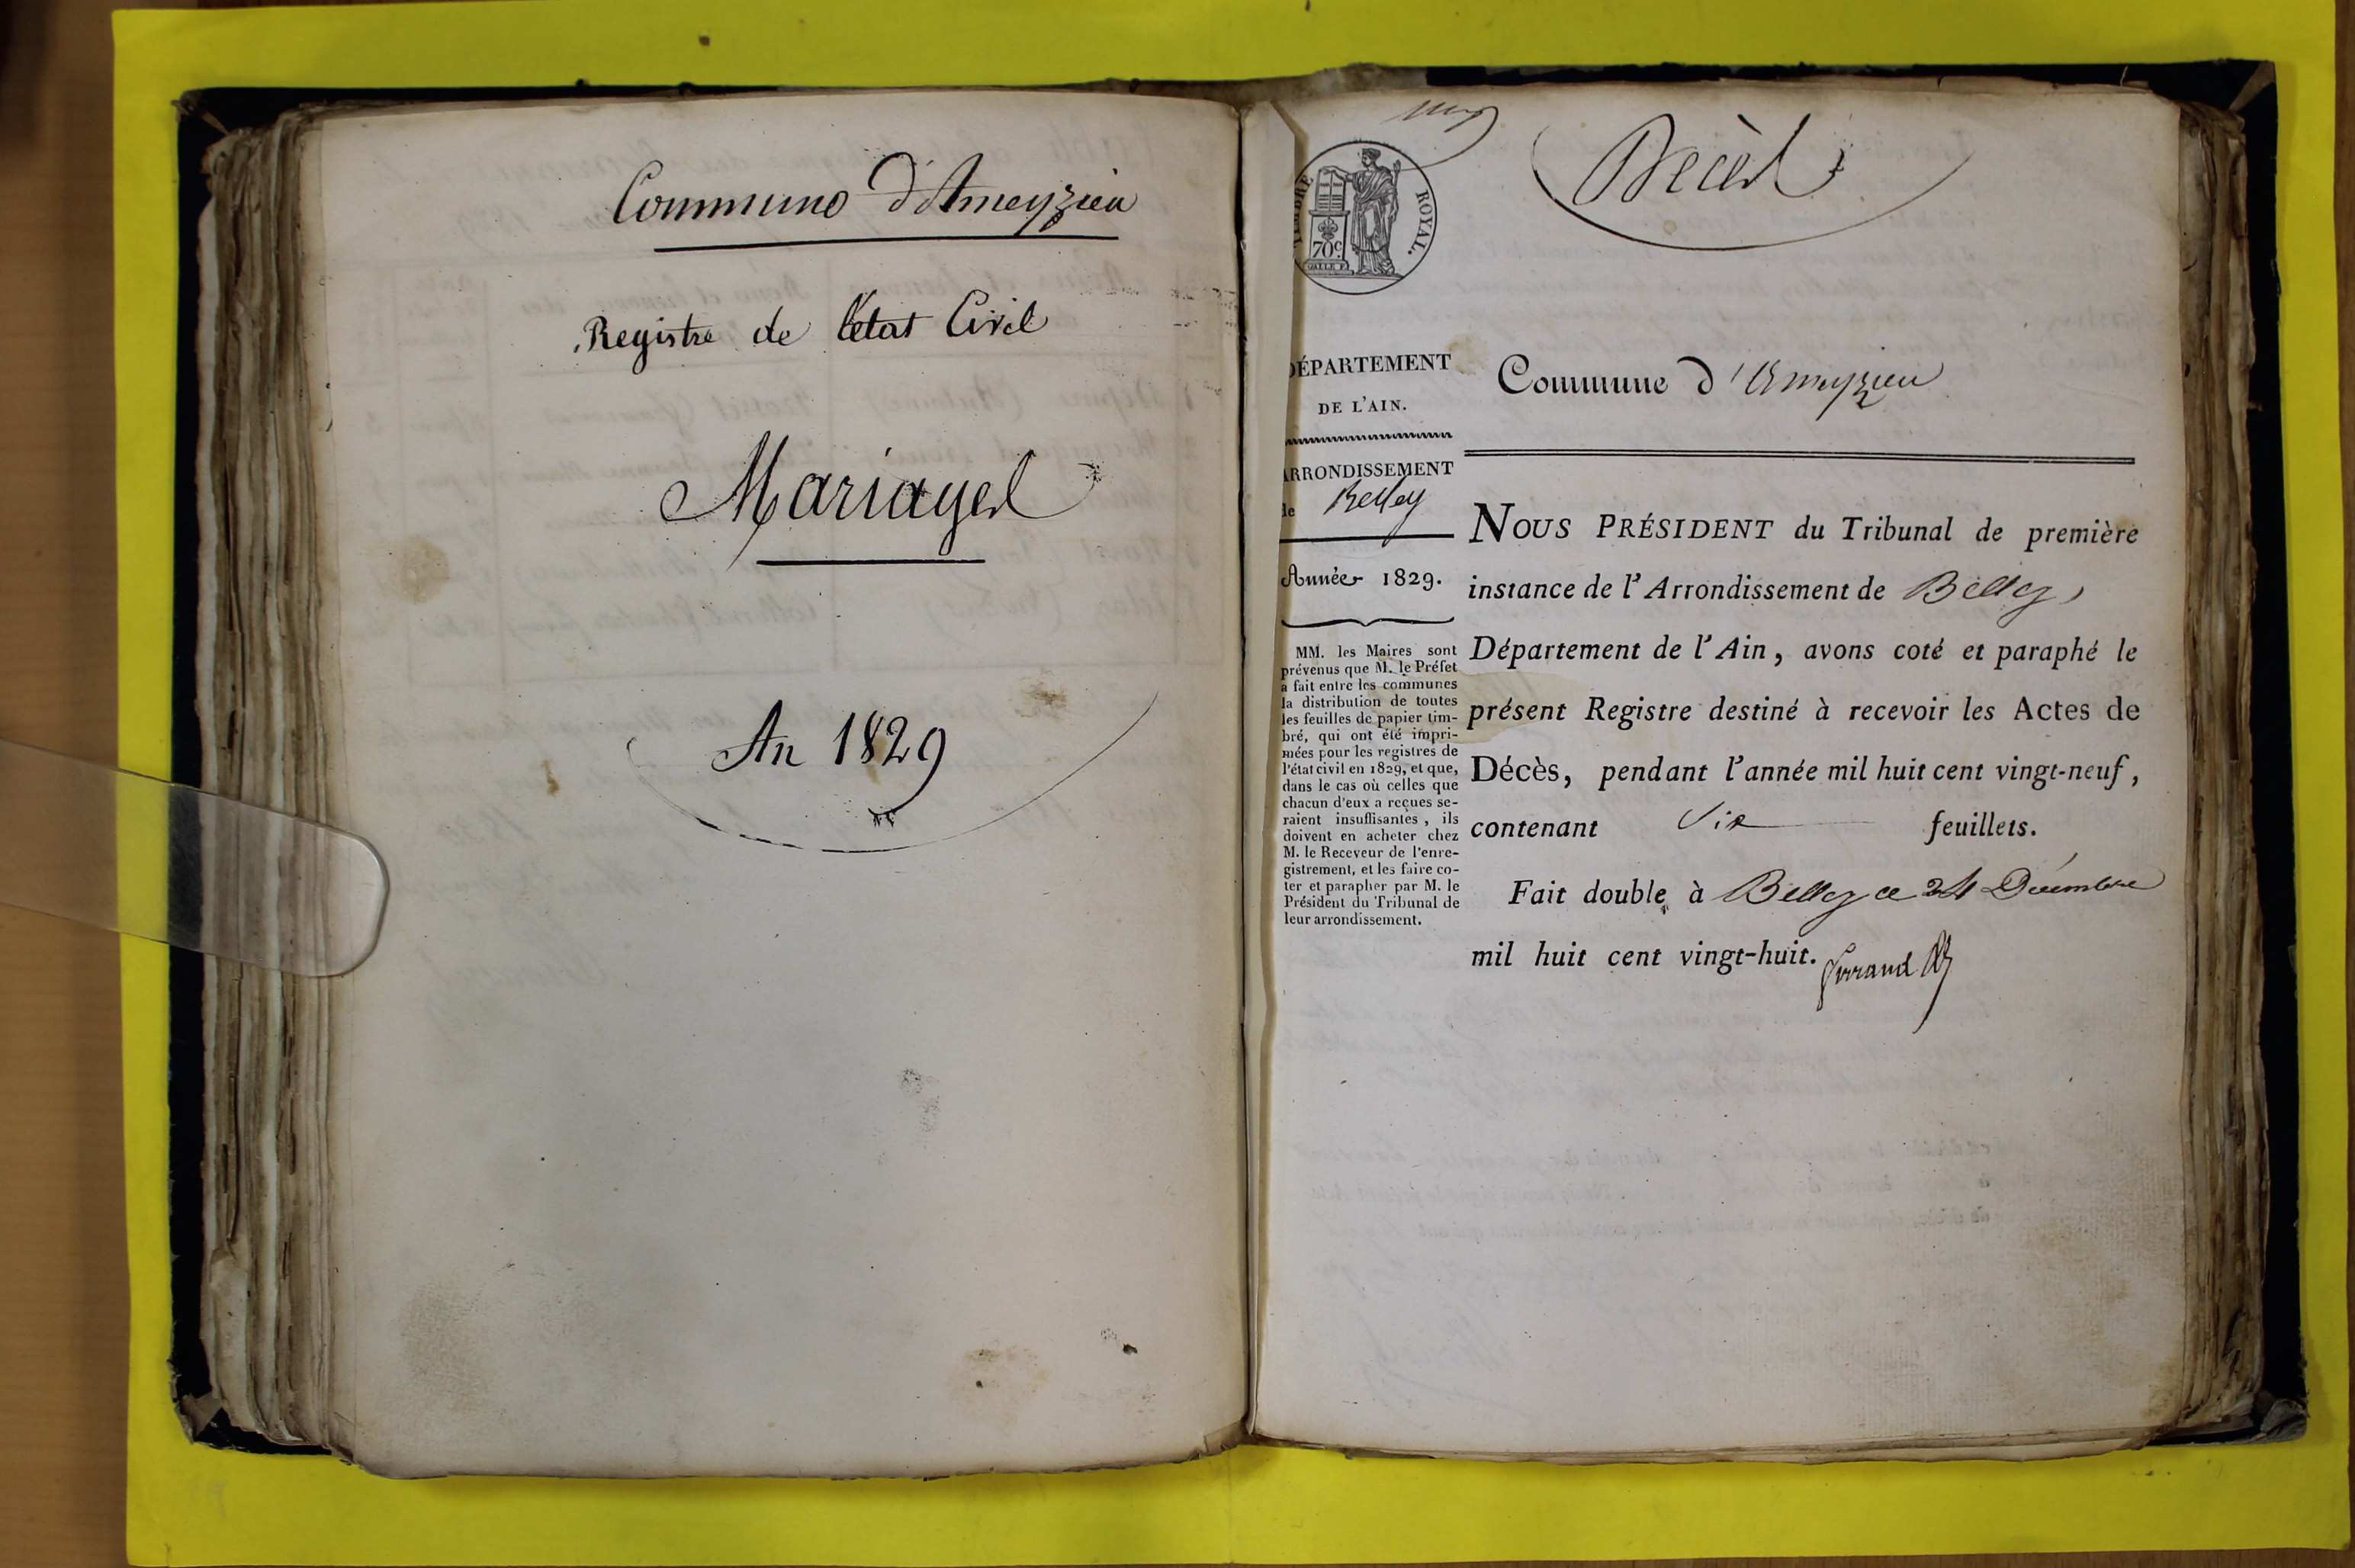 Commune d'Ameyzieu
Registre de l'état Civil
Mariages
An 1829
Décès
TIMBRE ROYAL.
70c
DÉPARTEMENT
DE L'AIN.
ARRONDISSEMENT
de Belley
Année 1829.
MM. les Maires sont
prévenus que M. le Préfet
a fait entre les communes
la distribution de toutes
les feuilles de papier tim-
bré, qui ont été impri-
mées pour les registres de
l'état civil en 1829, et que,
dans le cas où celles que
chacun d'eux a reçues se-
raient insuffisantes, ils
doivent en acheter chez
M. le Receveur de l'enre-
gistrement, et les faire co-
ter et parapher par M. le
Président du Tribunal de
leur arrondissement.
Commune d'Ameyzieu
NOUS PRÉSIDENT du Tribunal de première
instance de l'Arrondissement de Belley,
Département de l'Ain, avons coté et paraphé le
présent Registre destiné à recevoir les Actes de
Décès, pendant l'année mil huit cent vingt-neuf,
contenant Six feuillets.
Fait double à Belley ce 24 Décembre
mil huit cent vingt-huit.